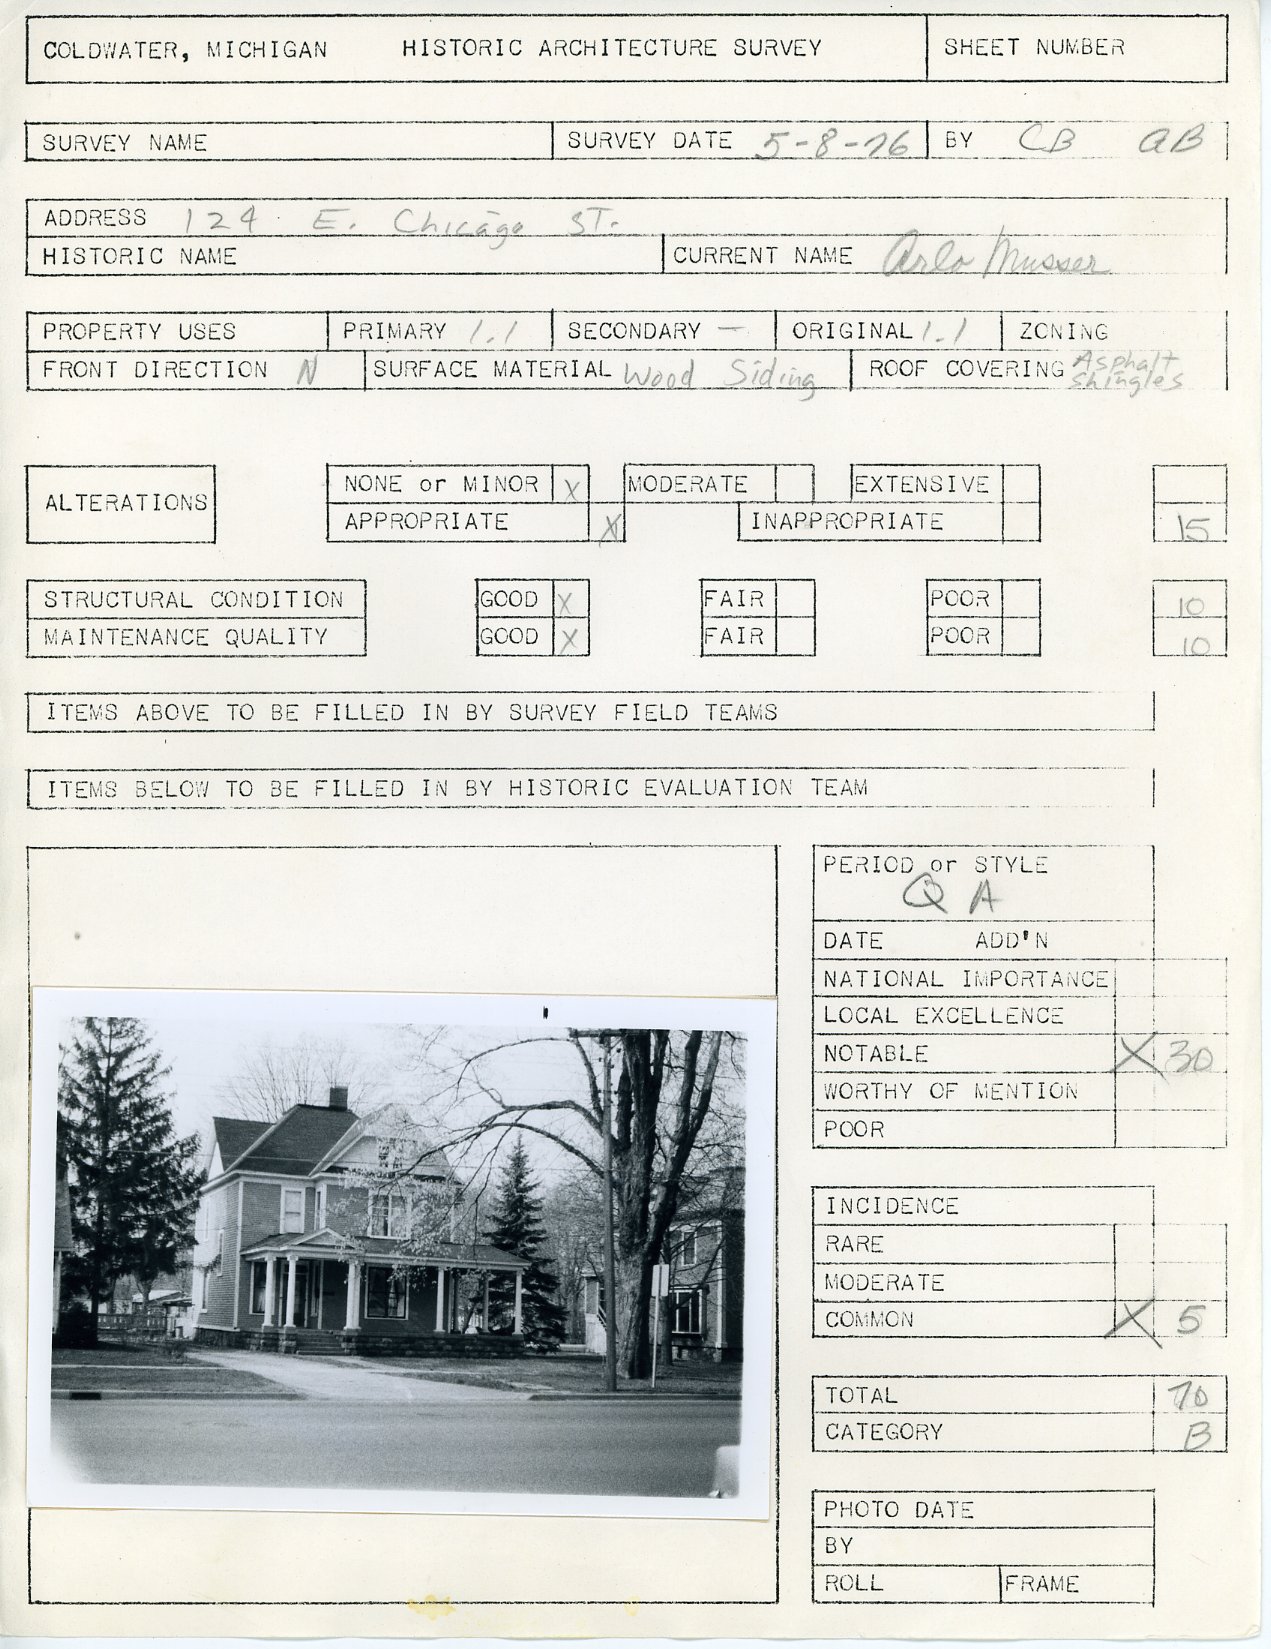 COLDWATER, MICHIGAN HISTORIC ARCHITECTURE SURVEY SHEET NUMBER
SURVEY NAME SURVEY DATE 5-8-76 BY CB AB
ADDRESS 124 E. Chicago ST.
HISTORIC NAME CURRENT NAME Arlo Musser
PROPERTY USES PRIMARY 1.1 SECONDARY — ORIGINAL 1.1 ZONING
FRONT DIRECTION N SURFACE MATERIAL Wood Siding ROOF COVERING Asphalt
Shingles
ALTERATIONS NONE or MINOR X MODERATE EXTENSIVE
APPROPRIATE X INAPPROPRIATE 15
STRUCTURAL CONDITION GOOD X FAIR POOR 10
MAINTENANCE QUALITY GOOD X FAIR POOR 10
ITEMS ABOVE TO BE FILLED IN BY SURVEY FIELD TEAMS
ITEMS BELOW TO BE FILLED IN BY HISTORIC EVALUATION TEAM
PERIOD or STYLE
Q A
DATE ADD'N
NATIONAL IMPORTANCE
LOCAL EXCELLENCE
NOTABLE X 30
WORTHY OF MENTION
POOR
INCIDENCE
RARE
MODERATE
COMMON X 5
TOTAL 70
CATEGORY B
PHOTO DATE
BY
ROLL FRAME